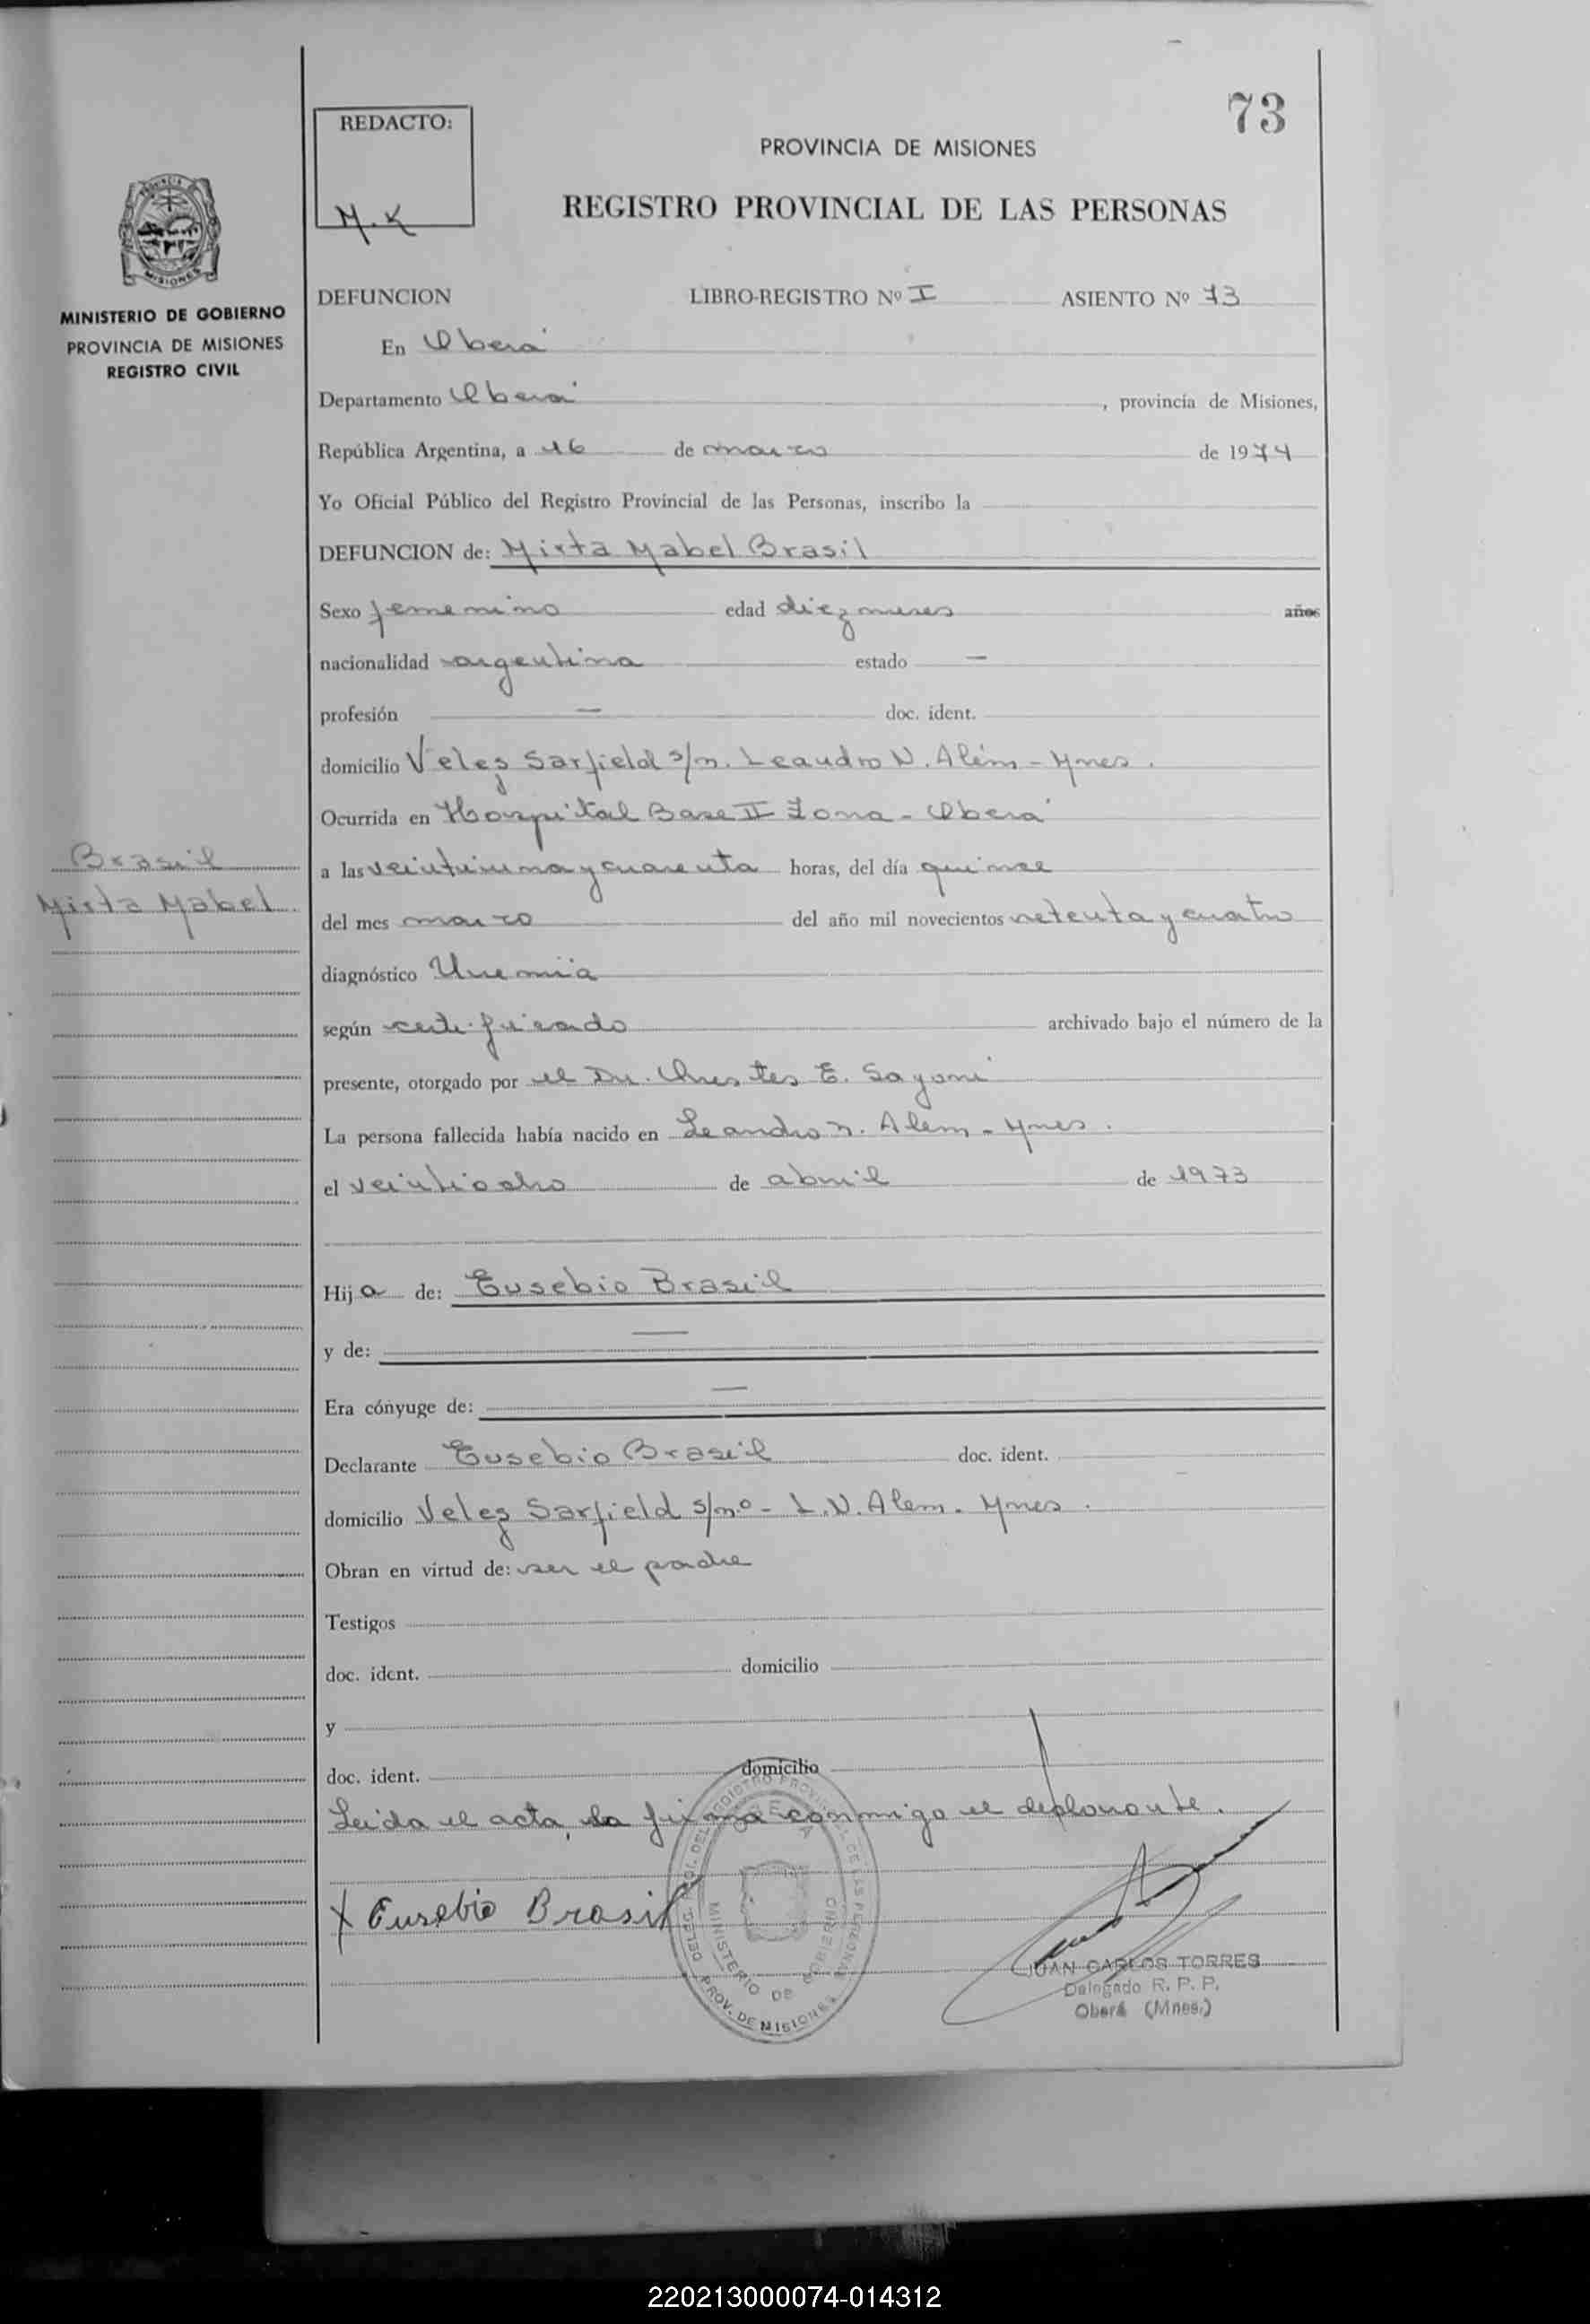 73
REDACTO:
M.K
PROVINCIA DE MISIONES
REGISTRO PROVINCIAL DE LAS PERSONAS
MINISTERIO DE GOBIERNO
PROVINCIA DE MISIONES
REGISTRO CIVIL
DEFUNCION LIBRO-REGISTRO Nº I ASIENTO Nº 73
En Oberá
Departamento Oberá, provincia de Misiones,
República Argentina, a 16 de marzo de 1974
Yo Oficial Público del Registro Provincial de las Personas, inscribo la
DEFUNCION de: Mirta Mabel Brasil
Sexo femenino edad diez meses años
nacionalidad argentina estado —
profesión — doc. ident.
domicilio Velez Sarfield s/n. Leandro N. Além - Mnes.
Ocurrida en Hospital Base II Zona - Oberá
Brasil
Mirta Mabel
a las veintiuna y cuarenta horas, del día quince
del mes marzo del año mil novecientos setenta y cuatro
diagnóstico Uremia
según certificado archivado bajo el número de la
presente, otorgado por el Dr. Orestes E.
La persona fallecida había nacido en Leandro N. Alem - Mnes.
el veintiocho de abril de 1973
Hija de: Eusebio Brasil
y de: —
Era cónyuge de: —
Declarante Eusebio Brasil doc. ident.
domicilio Velez Sarfield s/nº - L.N. Alem - Mnes.
Obran en virtud de: ser el padre
Testigos
doc. ident. domicilio
y
doc. ident. domicilio
Leída el acta, la firma conmigo el deplorante.
X Eusebio Brasil
MINISTERIO DE GOBIERNO
PROV. DE MISIONES
JUAN CARLOS TORRES
Delegado R. P. P.
Oberá (Mnes.)
220213000074-014312